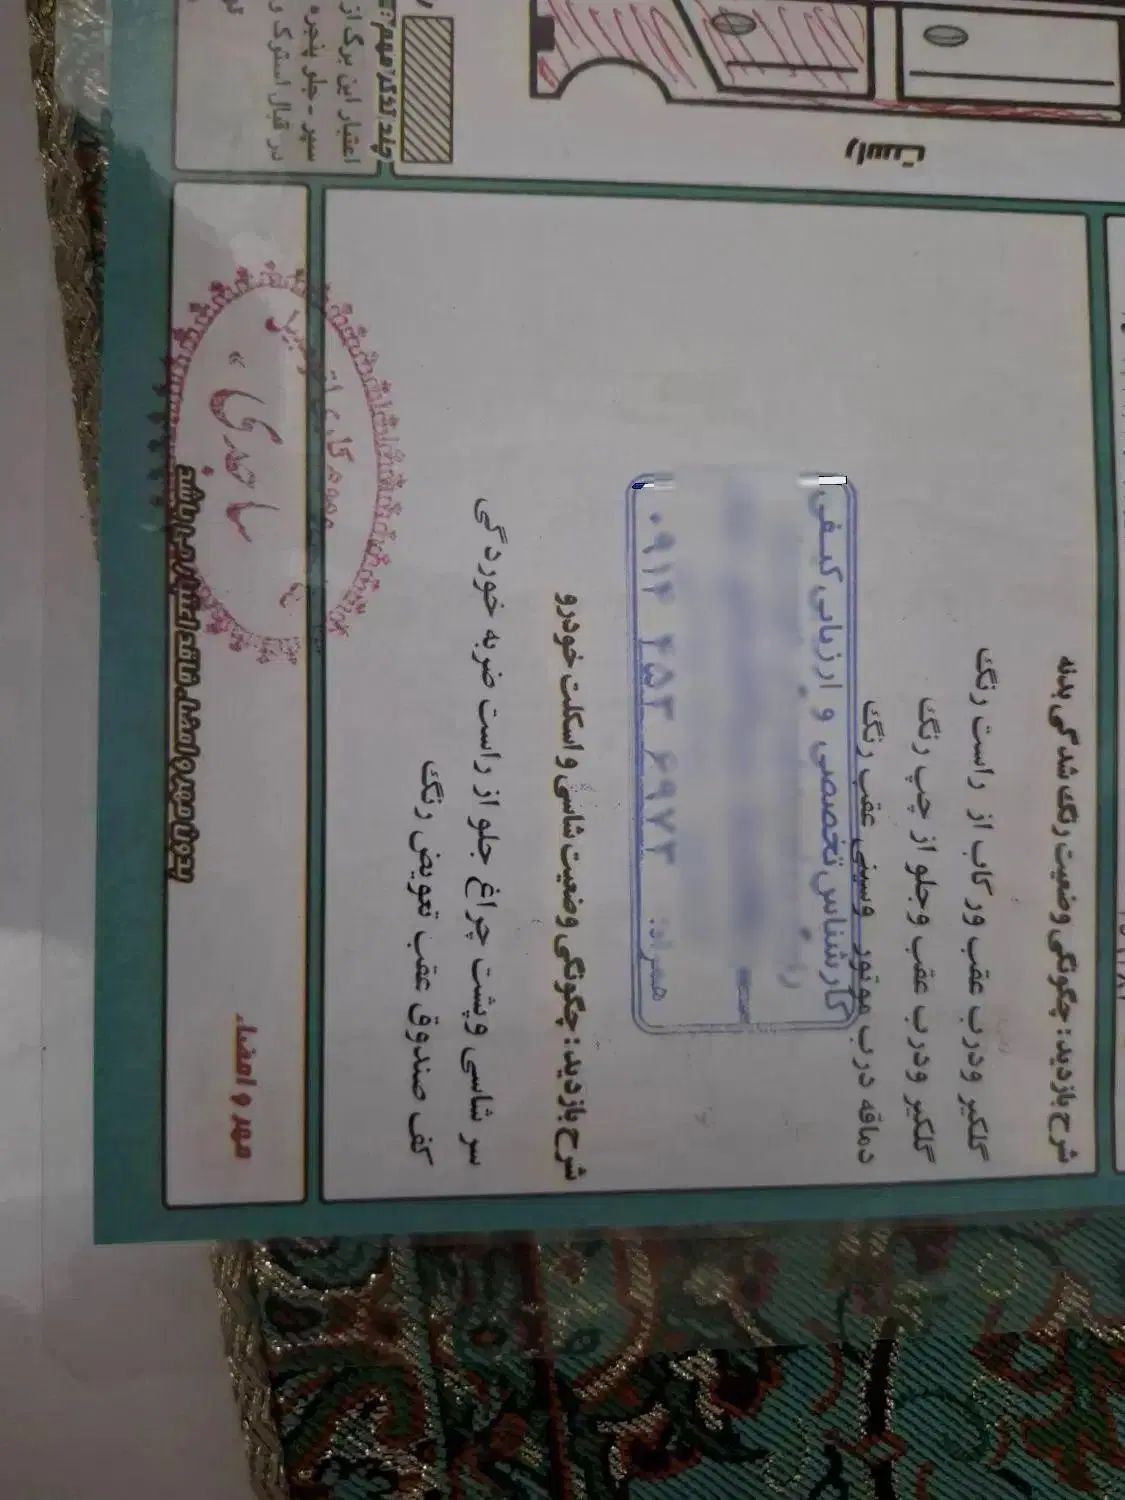 راست
چند تذکر مهم:
اعتبار این برگ از
سپر - جلو پنجره
در قبال استوک و
شرح بازدید: چگونگی وضعیت رنگ شدگی بدنه
گلگیر ودرب عقب ورکاب از راست رنگ
گلگیر ودرب عقب وجلو از چپ رنگ
دماقه درب موتور وسینی عقب رنگ
کارشناس تخصصی و ارزیابی کیفی
همراه: ۰۹۱۴ ۴۵۳ ۶۹۷۳
شرح بازدید: چگونگی وضعیت شاسی و اسکلت خودرو
سر شاسی وپشت چراغ جلو از راست ضربه خوردگی
کف صندوق عقب تعویض رنگ
مهر و امضاء
ساجدی
بدون مهر و امضاء فاقد اعتبار می باشد